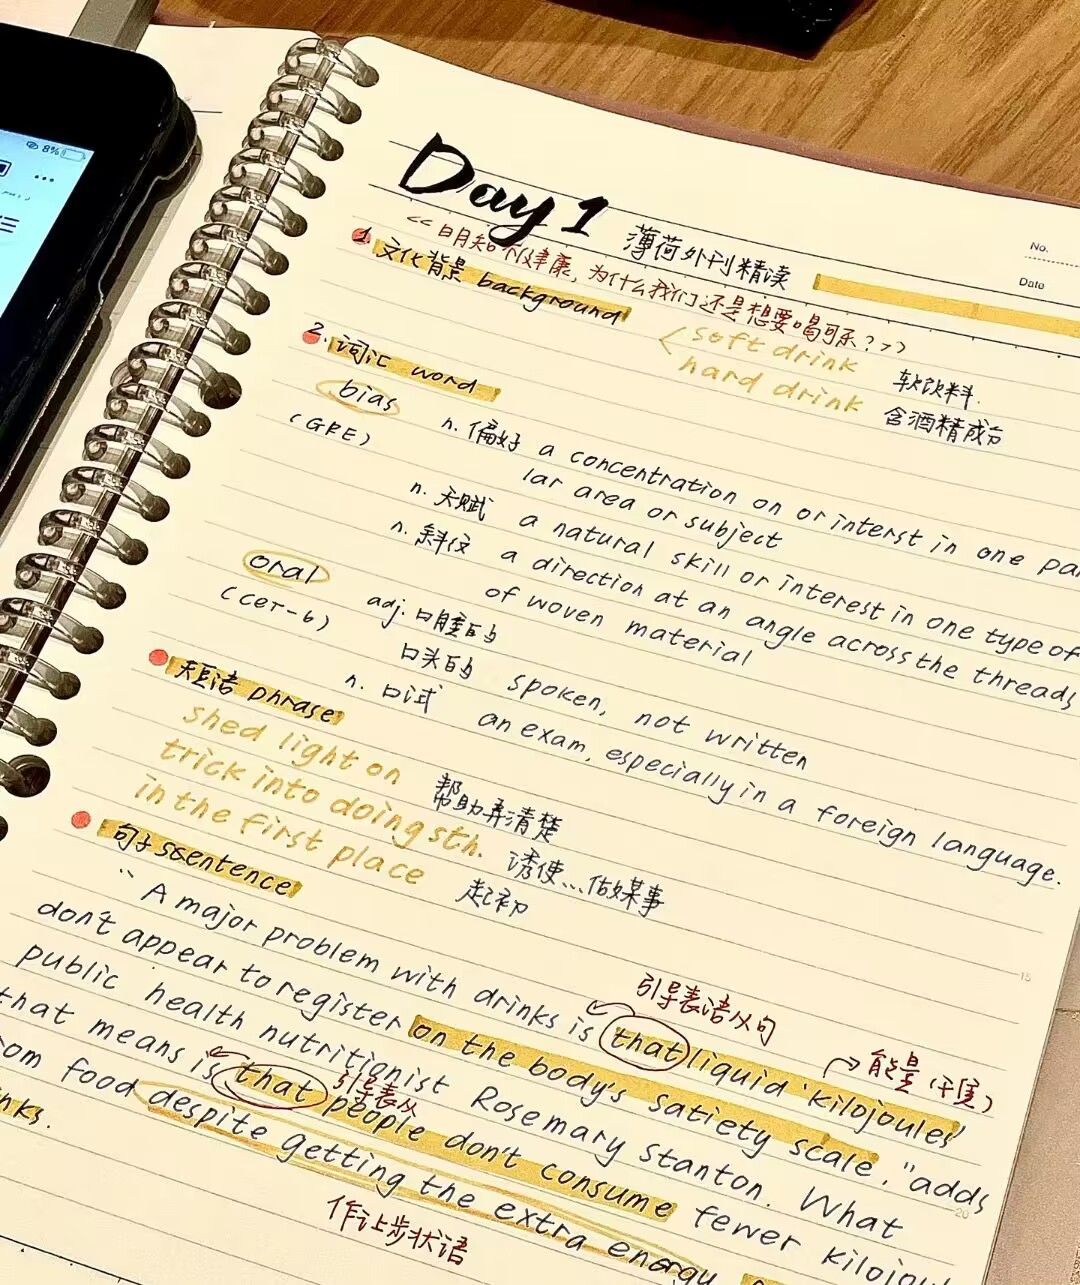 8%
No.
Date
Day 1 薄荷外刊精读
<<明知不健康,为什么我们还是想要喝可乐?>>
1. 文化背景 background
soft drink 软饮料.
hard drink 含酒精成分
2. 词汇 word
bias n. 偏好 a concentration on or interst in one par
(GRE) lar area or subject
n. 天赋 a natural skill or interest in one type of
n. 斜纹 a direction at an angle across the threads
of woven material
oral adj. 口腔的
(CET-6) 口头的 spoken, not written
n. 口试 an exam, especially in a foreign language.
短语 phrase
shed light on 帮助弄清楚
trick into doing sth. 诱使...做某事
in the first place 起初
句子 sentence
"A major problem with drinks is that liquid 'kilojoules'
引导表语从句
→能量(千焦)
don't appear to register on the body's satiety scale," adds
public health nutritionist Rosemary Stanton. What
that means is that people don't consume fewer kilojou
引导表从
om food despite getting the extra energy
nks.
作让步状语
15
20